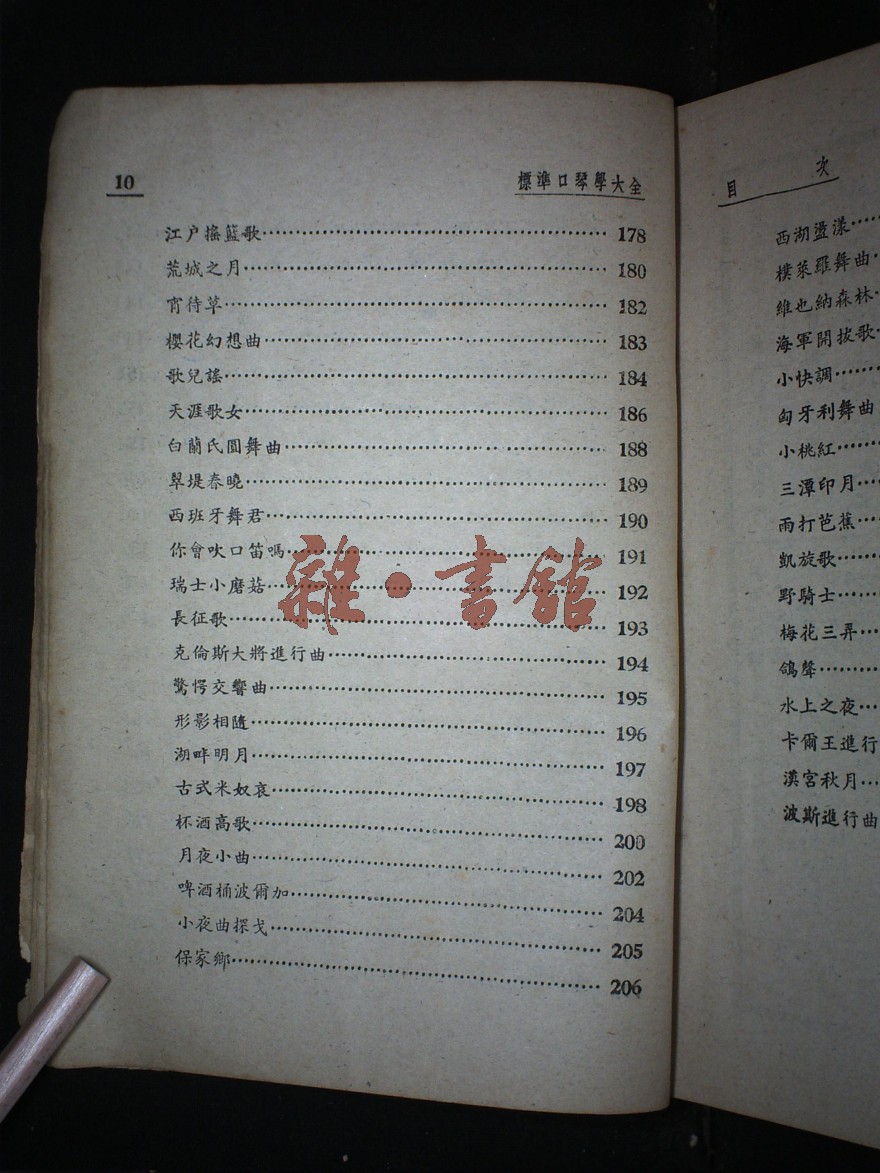 10 標準口琴學大全
江户搖籃歌 178
荒城之月 180
宵待草 182
櫻花幻想曲 183
歌兒謠 184
天涯歌女 186
白蘭氏圓舞曲 188
翠堤春曉 189
西班牙舞君 190
你會吹口笛嗎 191
瑞士小磨菇 192
長征歌 193
克倫斯大將進行曲 194
驚愕交響曲 195
形影相隨 196
湖畔明月 197
古式米奴哀 198
杯酒高歌 200
月夜小曲 202
啤酒桶波爾加 204
小夜曲探戈 205
保家鄉 206
雜·書館
目 次
西湖盪漾
樸萊羅舞曲
維也納森林
海軍開拔歌
小快調
匈牙利舞曲
小桃紅
三潭印月
雨打芭蕉
凱旋歌
野騎士
梅花三弄
鴿聲
水上之夜
卡爾王進行
漢宮秋月
波斯進行曲